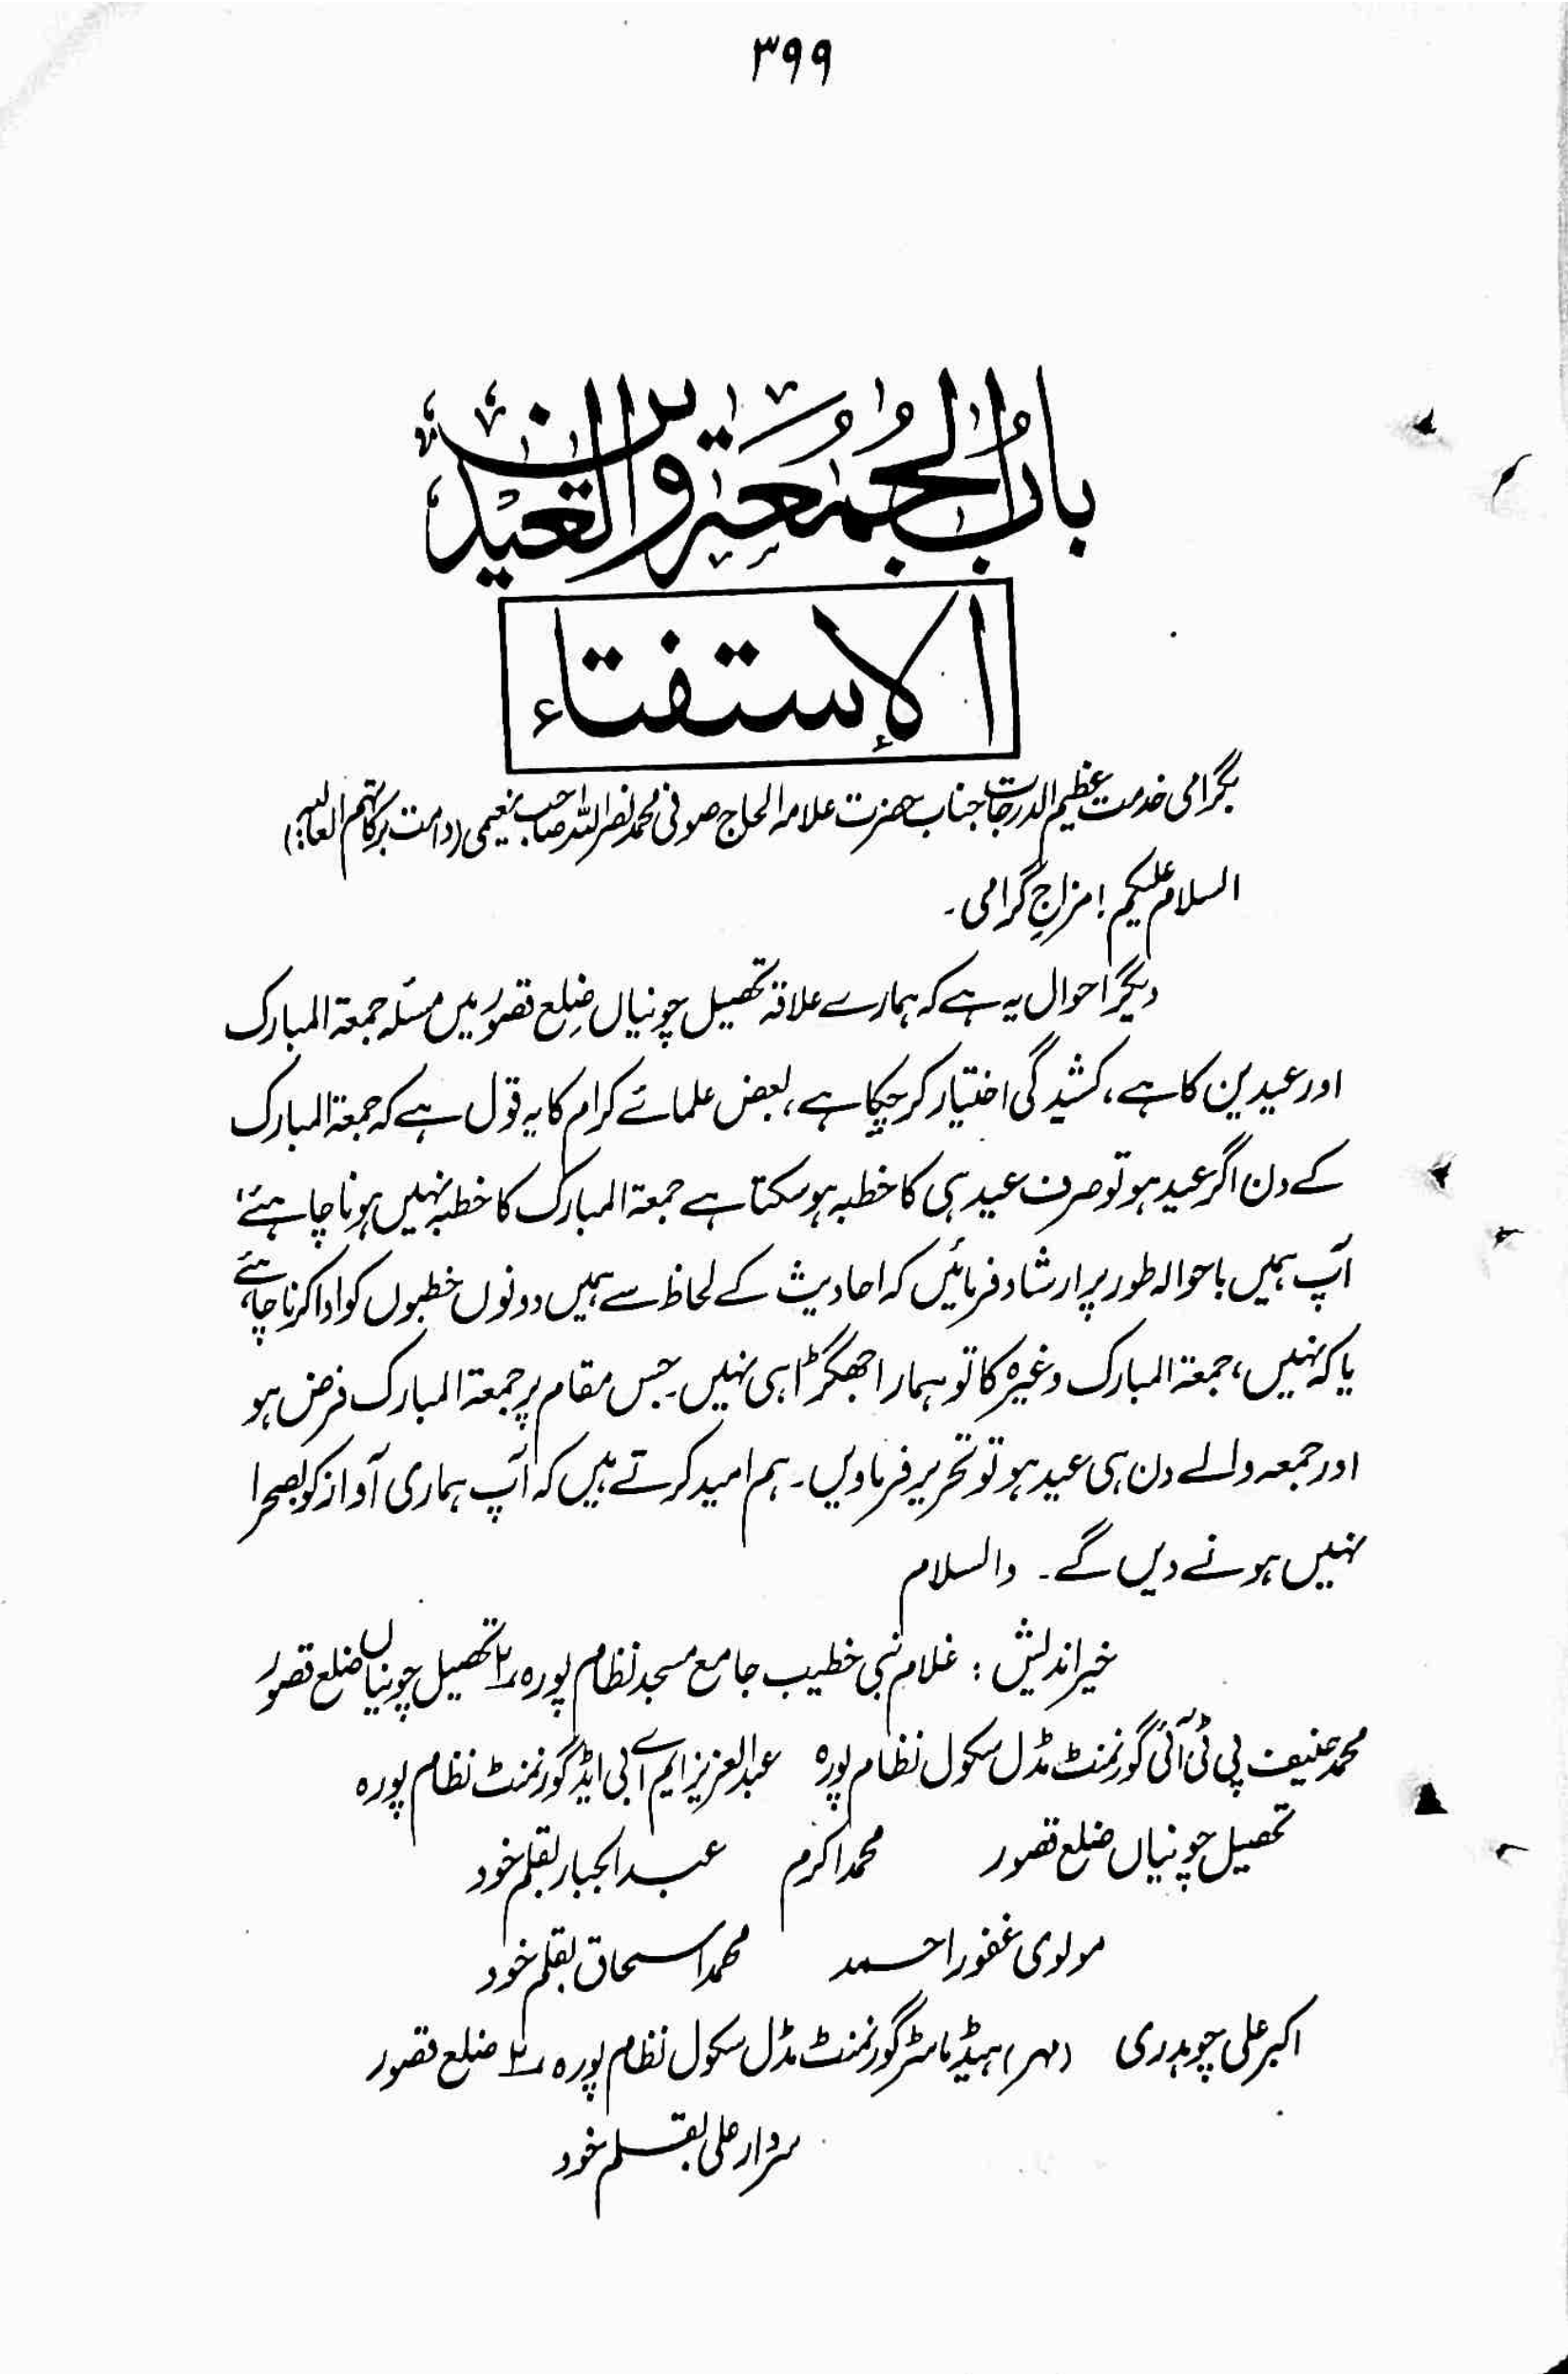 ۳۹۹
بَابُ الْجُمُعَةِ وَالْعِيْدَيْنِ
الإستفتاء
بگرامی خدمت عظیم الدرجات جناب حضرت علامہ الحاج صوفی محمد نصر اللہ صاحب نعیمی (دامت برکاتہم العالیہ)
السلام علیکم! مزاجِ گرامی۔
دیگر احوال یہ ہے کہ ہمارے علاقہ تحصیل چونیاں ضلع قصور میں مسئلہ جمعۃ المبارک
اور عیدین کا ہے، کشیدگی اختیار کر چکا ہے، بعض علمائے کرام کا یہ قول ہے کہ جمعۃ المبارک
کے دن اگر عید ہو تو صرف عید ہی کا خطبہ ہو سکتا ہے جمعۃ المبارک کا خطبہ نہیں ہونا چاہئے،
آپ ہمیں باحوالہ طور پر ارشاد فرمائیں کہ احادیث کے لحاظ سے ہمیں دونوں خطبوں کو ادا کرنا چاہئے
یا کہ نہیں، جمعۃ المبارک وغیرہ کا تو ہمارا جھگڑا ہی نہیں۔ جس مقام پر جمعۃ المبارک فرض ہو
اور جمعہ والے دن ہی عید ہو تو تحریر فرماویں۔ ہم امید کرتے ہیں کہ آپ ہماری آواز کو بصحرا
نہیں ہونے دیں گے۔ والسلام
خیر اندیش : غلام نبی خطیب جامع مسجد نظام پورہ تحصیل چونیاں ضلع قصور
محمد حنیف پی ٹی آئی گورنمنٹ مڈل سکول نظام پورہ عبدالعزیز ایم اے بی ایڈ گورنمنٹ نظام پورہ
تحصیل چونیاں ضلع قصور محمد اکرم عبدالجبار بقلم خود
مولوی غفور احمد محمد اسحاق بقلم خود
اکبر علی چوہدری (مہر) ہیڈ ماسٹر گورنمنٹ مڈل سکول نظام پورہ ضلع قصور
سردار علی بقلم خود